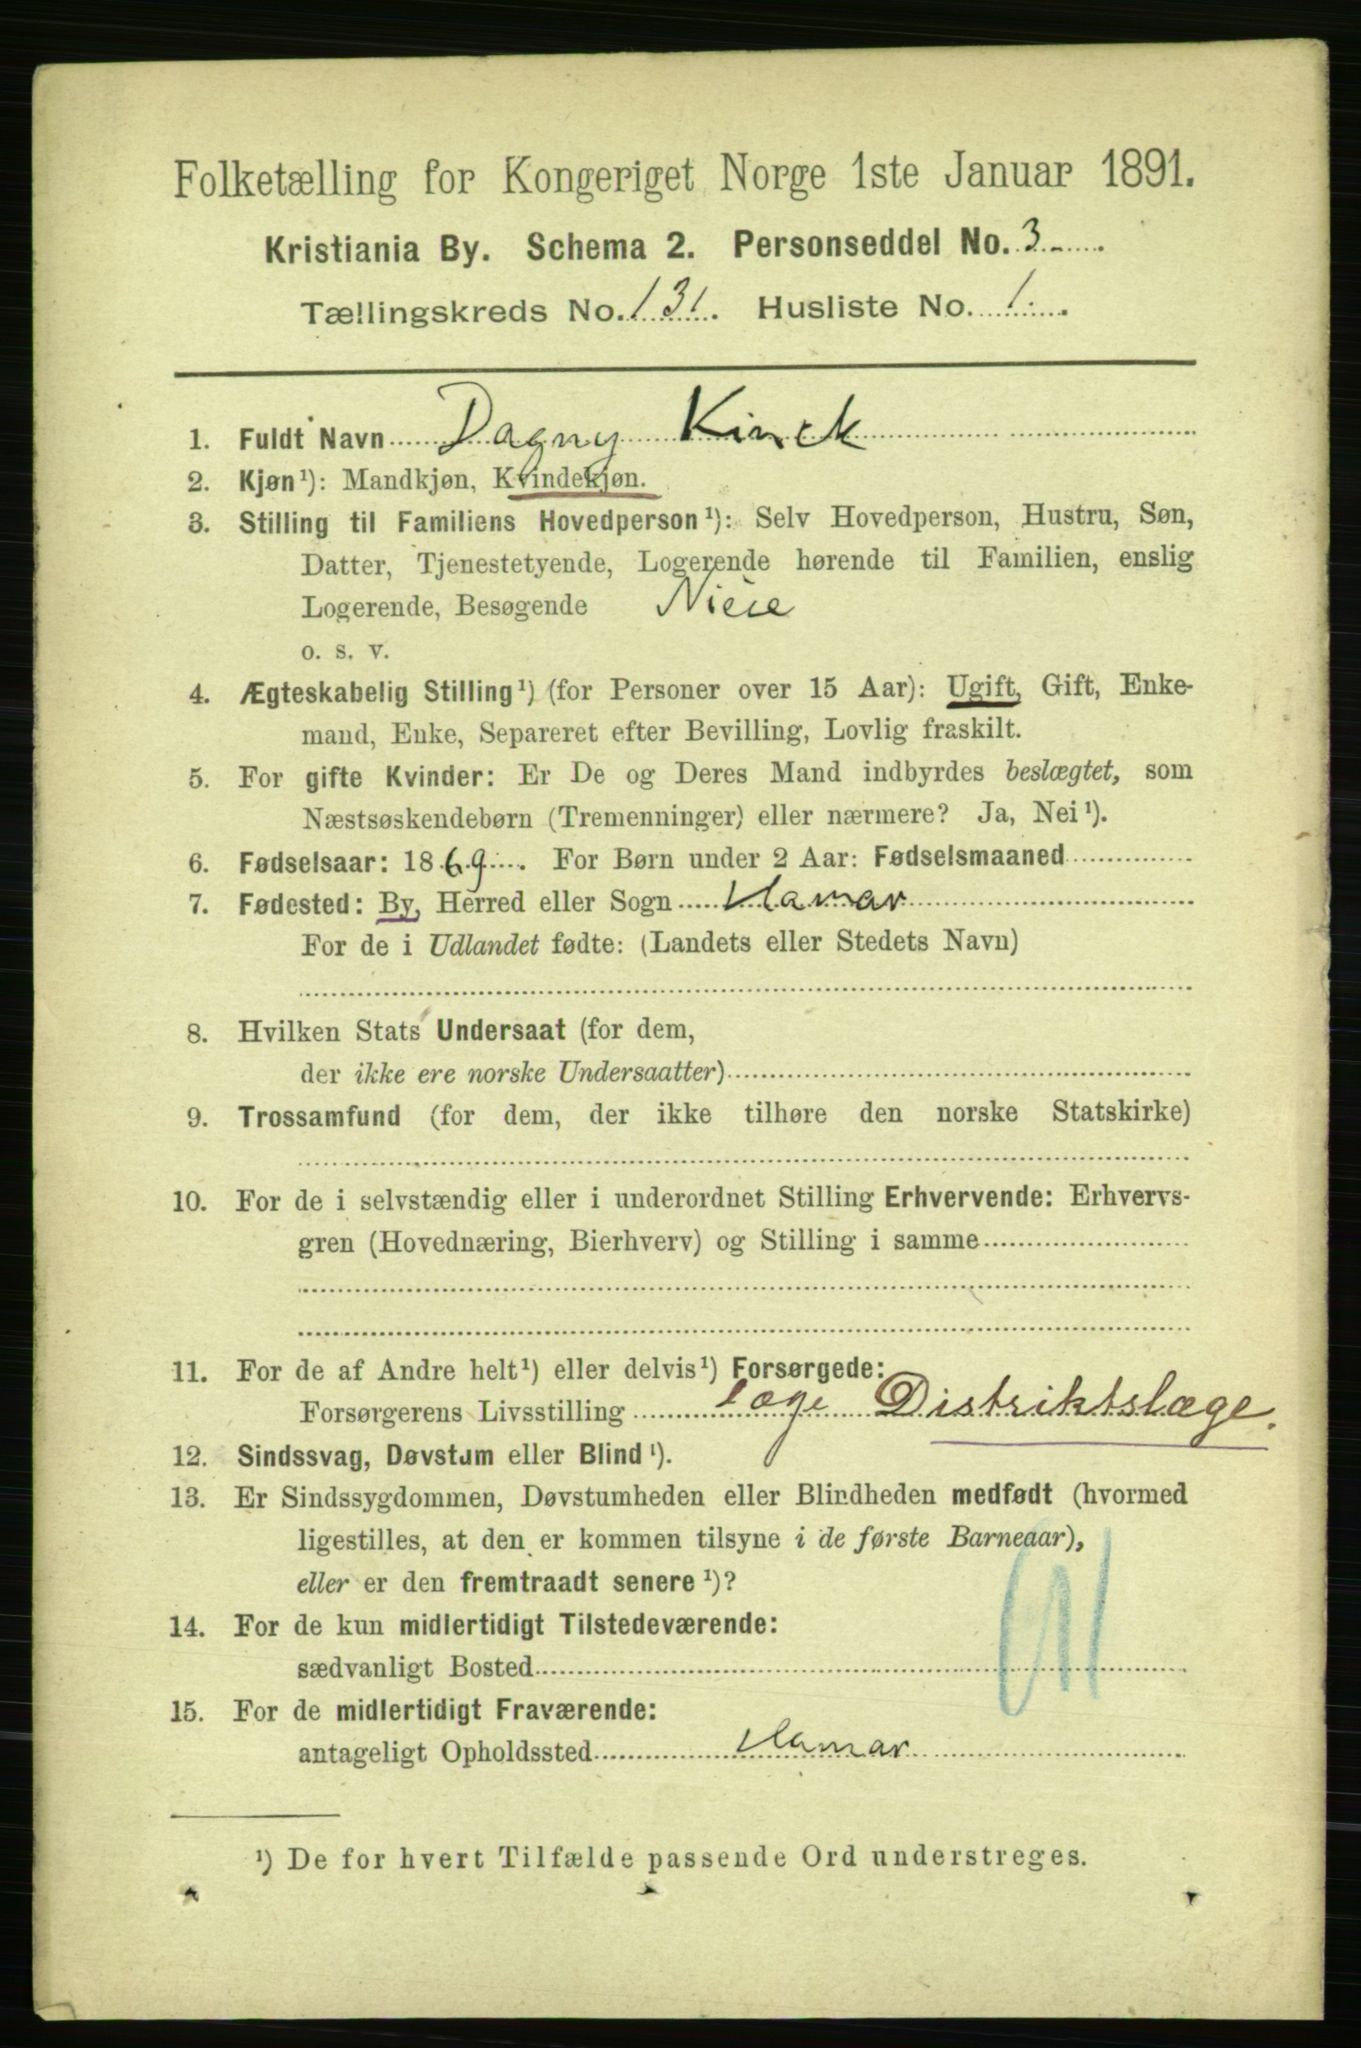 Folketælling for Kongeriget Norge 1ste Januar 1891.
Kristiania By. Schema 2. Personseddel No. 3
Tællingskreds No. 131. Husliste No. 1.
1. Fuldt Navn Dagny Kinck
2. Kjøn¹): Mandkjøn, Kvindekjøn.
3. Stilling til Familiens Hovedperson¹): Selv Hovedperson, Hustru, Søn,
Datter, Tjenestetyende, Logerende hørende til Familien, enslig
Logerende, Besøgende Niece
o. s. v.
4. Ægteskabelig Stilling¹) (for Personer over 15 Aar): Ugift, Gift, Enke-
mand, Enke, Separeret efter Bevilling, Lovlig fraskilt.
5. For gifte Kvinder: Er De og Deres Mand indbyrdes beslægtet, som
Næstsøskendebørn (Tremenninger) eller nærmere? Ja, Nei¹).
6. Fødselsaar: 1869. For Børn under 2 Aar: Fødselsmaaned
7. Fødested: By, Herred eller Sogn Hamar
For de i Udlandet fødte: (Landets eller Stedets Navn)
8. Hvilken Stats Undersaat (for dem,
der ikke ere norske Undersaatter)
9. Trossamfund (for dem, der ikke tilhøre den norske Statskirke)
10. For de i selvstændig eller i underordnet Stilling Erhvervende: Erhvervs-
gren (Hovednæring, Bierhverv) og Stilling i samme
11. For de af Andre helt¹) eller delvis¹) Forsørgede:
Forsørgerens Livsstilling læge Distriktslæge.
12. Sindssvag, Døvstum eller Blind¹).
13. Er Sindssygdommen, Døvstumheden eller Blindheden medfødt (hvormed
ligestilles, at den er kommen tilsyne i de første Barneaar),
eller er den fremtraadt senere¹)?
14. For de kun midlertidigt Tilstedeværende:
sædvanligt Bosted
15. For de midlertidigt Fraværende:
antageligt Opholdssted Hamar
¹) De for hvert Tilfælde passende Ord understreges.